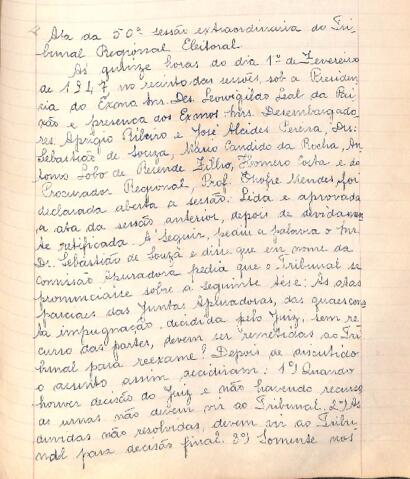 Ata da 50ª sessão extraordinaria do Tri-
bunal Regional Eleitoral.
Ás quinze horas do dia 1º de Fevereiro
de 1947 no recinto das sessões, sob a Presiden-
cia do Exmo Snr. Des. Leovigildo Leal da Pai-
xão e presença dos Exmos Snrs. Desembargado-
res. Aprigio Ribeiro e José Alcides Pereira, Drs:
Sebastião de Souza, Mario Candido da Rocha, An-
tonio Lobo de Rezende Filho, Homero Costa e do
Procurador Regional, Prof. Onofre Mendes, foi
declarada aberta a sessão. Lida e aprovada
a ata da sessão anterior, depois de devidamen-
te retificada. A seguir, pediu a palavra o Snr.
Dr. Sebastião de Souza e disse que em nome da
Comissão Apuradora pedia que o Tribunal se
pronunciasse sobre a seguinte tése: As atas
parciais das Juntas Apuradoras, das quaes cons-
ta impugnação, decidida pelo Juiz, sem re-
curso das partes, devem ser remetidas ao Tri-
bunal para reexame? Depois de discutido
o assunto assim decidiram: 1º) Quando
houver decisão do Juiz e não havendo recurso
as urnas não devem vir ao Tribunal. 2º) As
duvidas não resolvidas, devem vir ao Tribu-
nal para decisão final. 3º) Somente nos